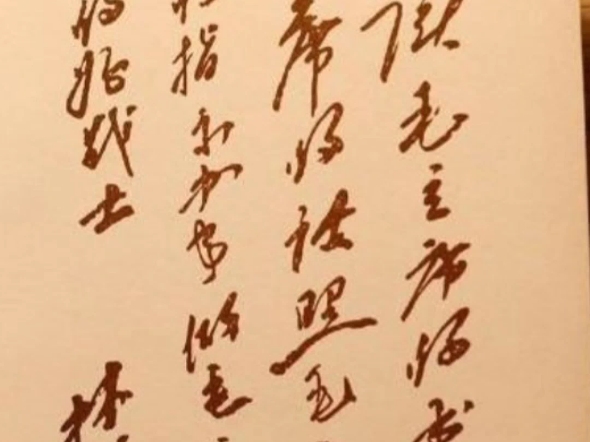 读毛主席的书
席的话照毛
的指示办事做毛
的好战士 林